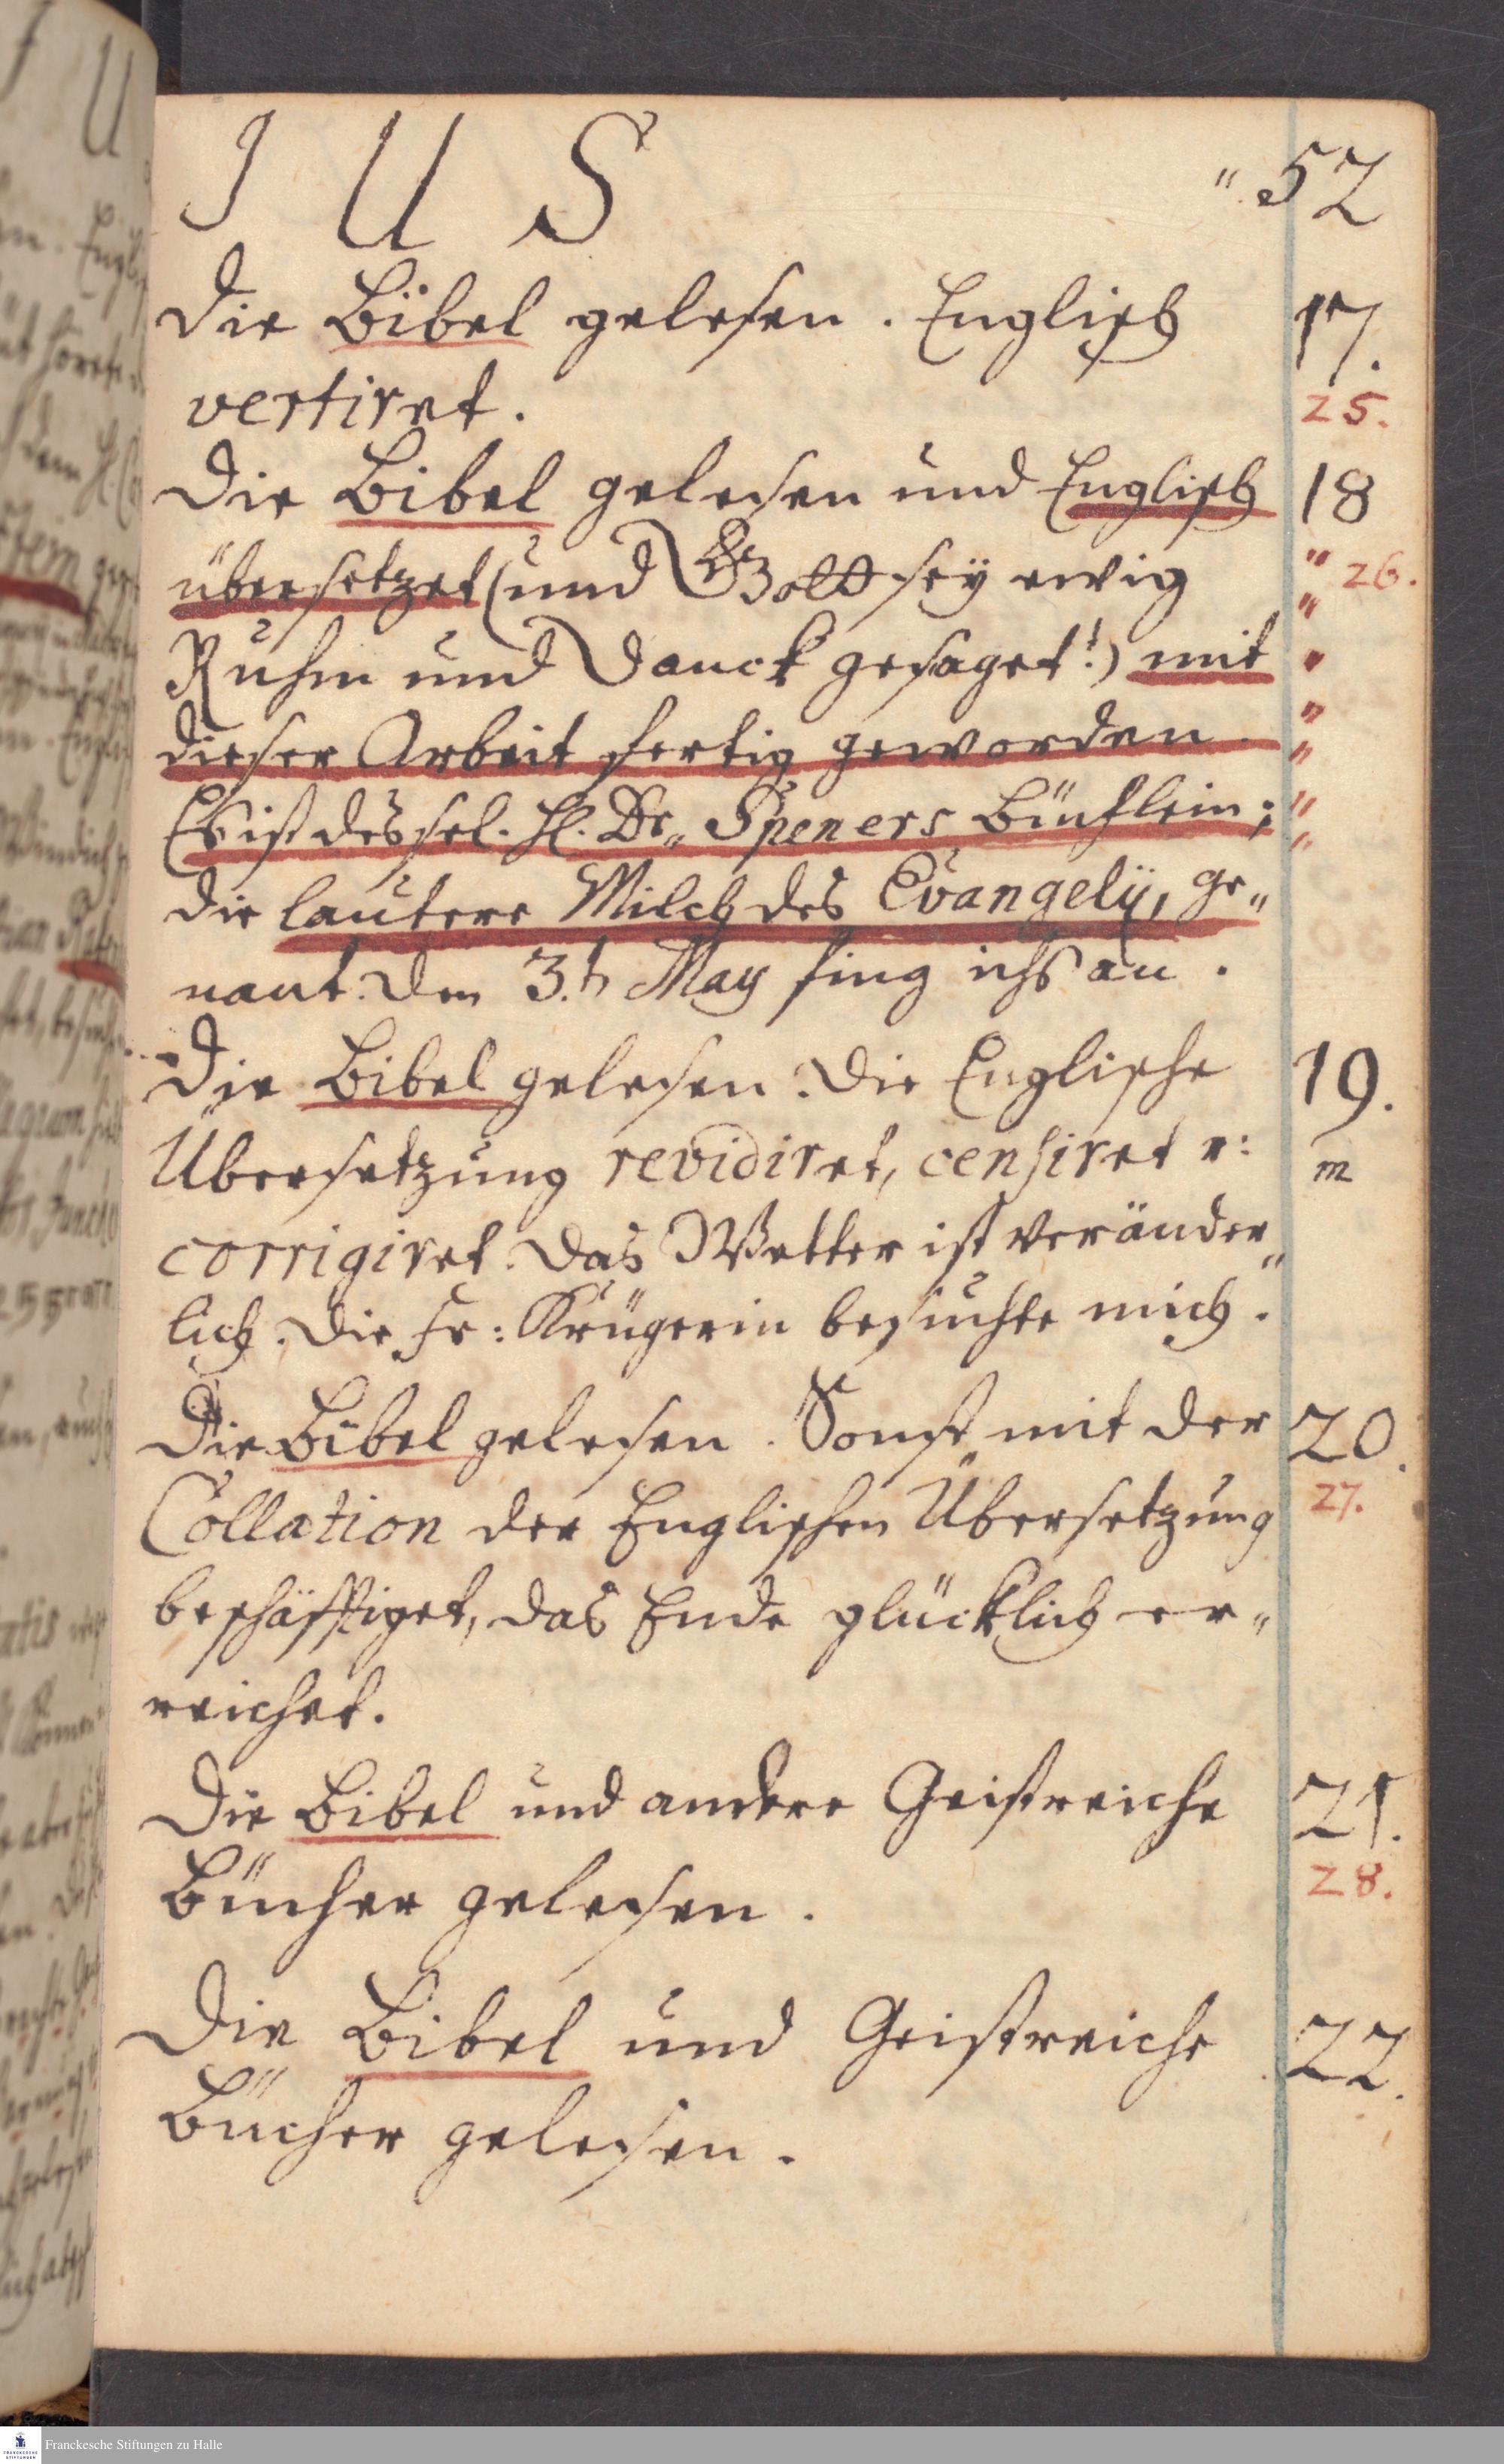 J U S „ 52
Die Bibel gelesen. Englisch 17.
vertiret. 25.
Die Bibel gelesen und Englisch 18
übersetzet (und Gott sey ewig 26.
Ruhm und Danck gesaget!) mit
dieser Arbeit fertig geworden.
Es ist des sel. H. Dr. Speners Büchlein;
die lautere Milch des Evangelij, ge„
nant. Den 3.t. May fing ichs an.
Die Bibel gelesen. Die Englische 19.
Übersetzung revidiret, censiret u: m
corrigiret. Das Wetter ist veränder„
lich. Die Fr: Krügerin besuchte mich.
Die Bibel gelesen. Sonst mit der 20.
Collation der Englischen Übersetzung 27.
beschäfftiget, das Ende glücklich er„
reichet.
Die Bibel und andere Geistreiche 21.
Bücher gelesen. 28.
Die Bibel und Geistreiche 22.
Bücher gelesen.
Franckesche Stiftungen zu Halle